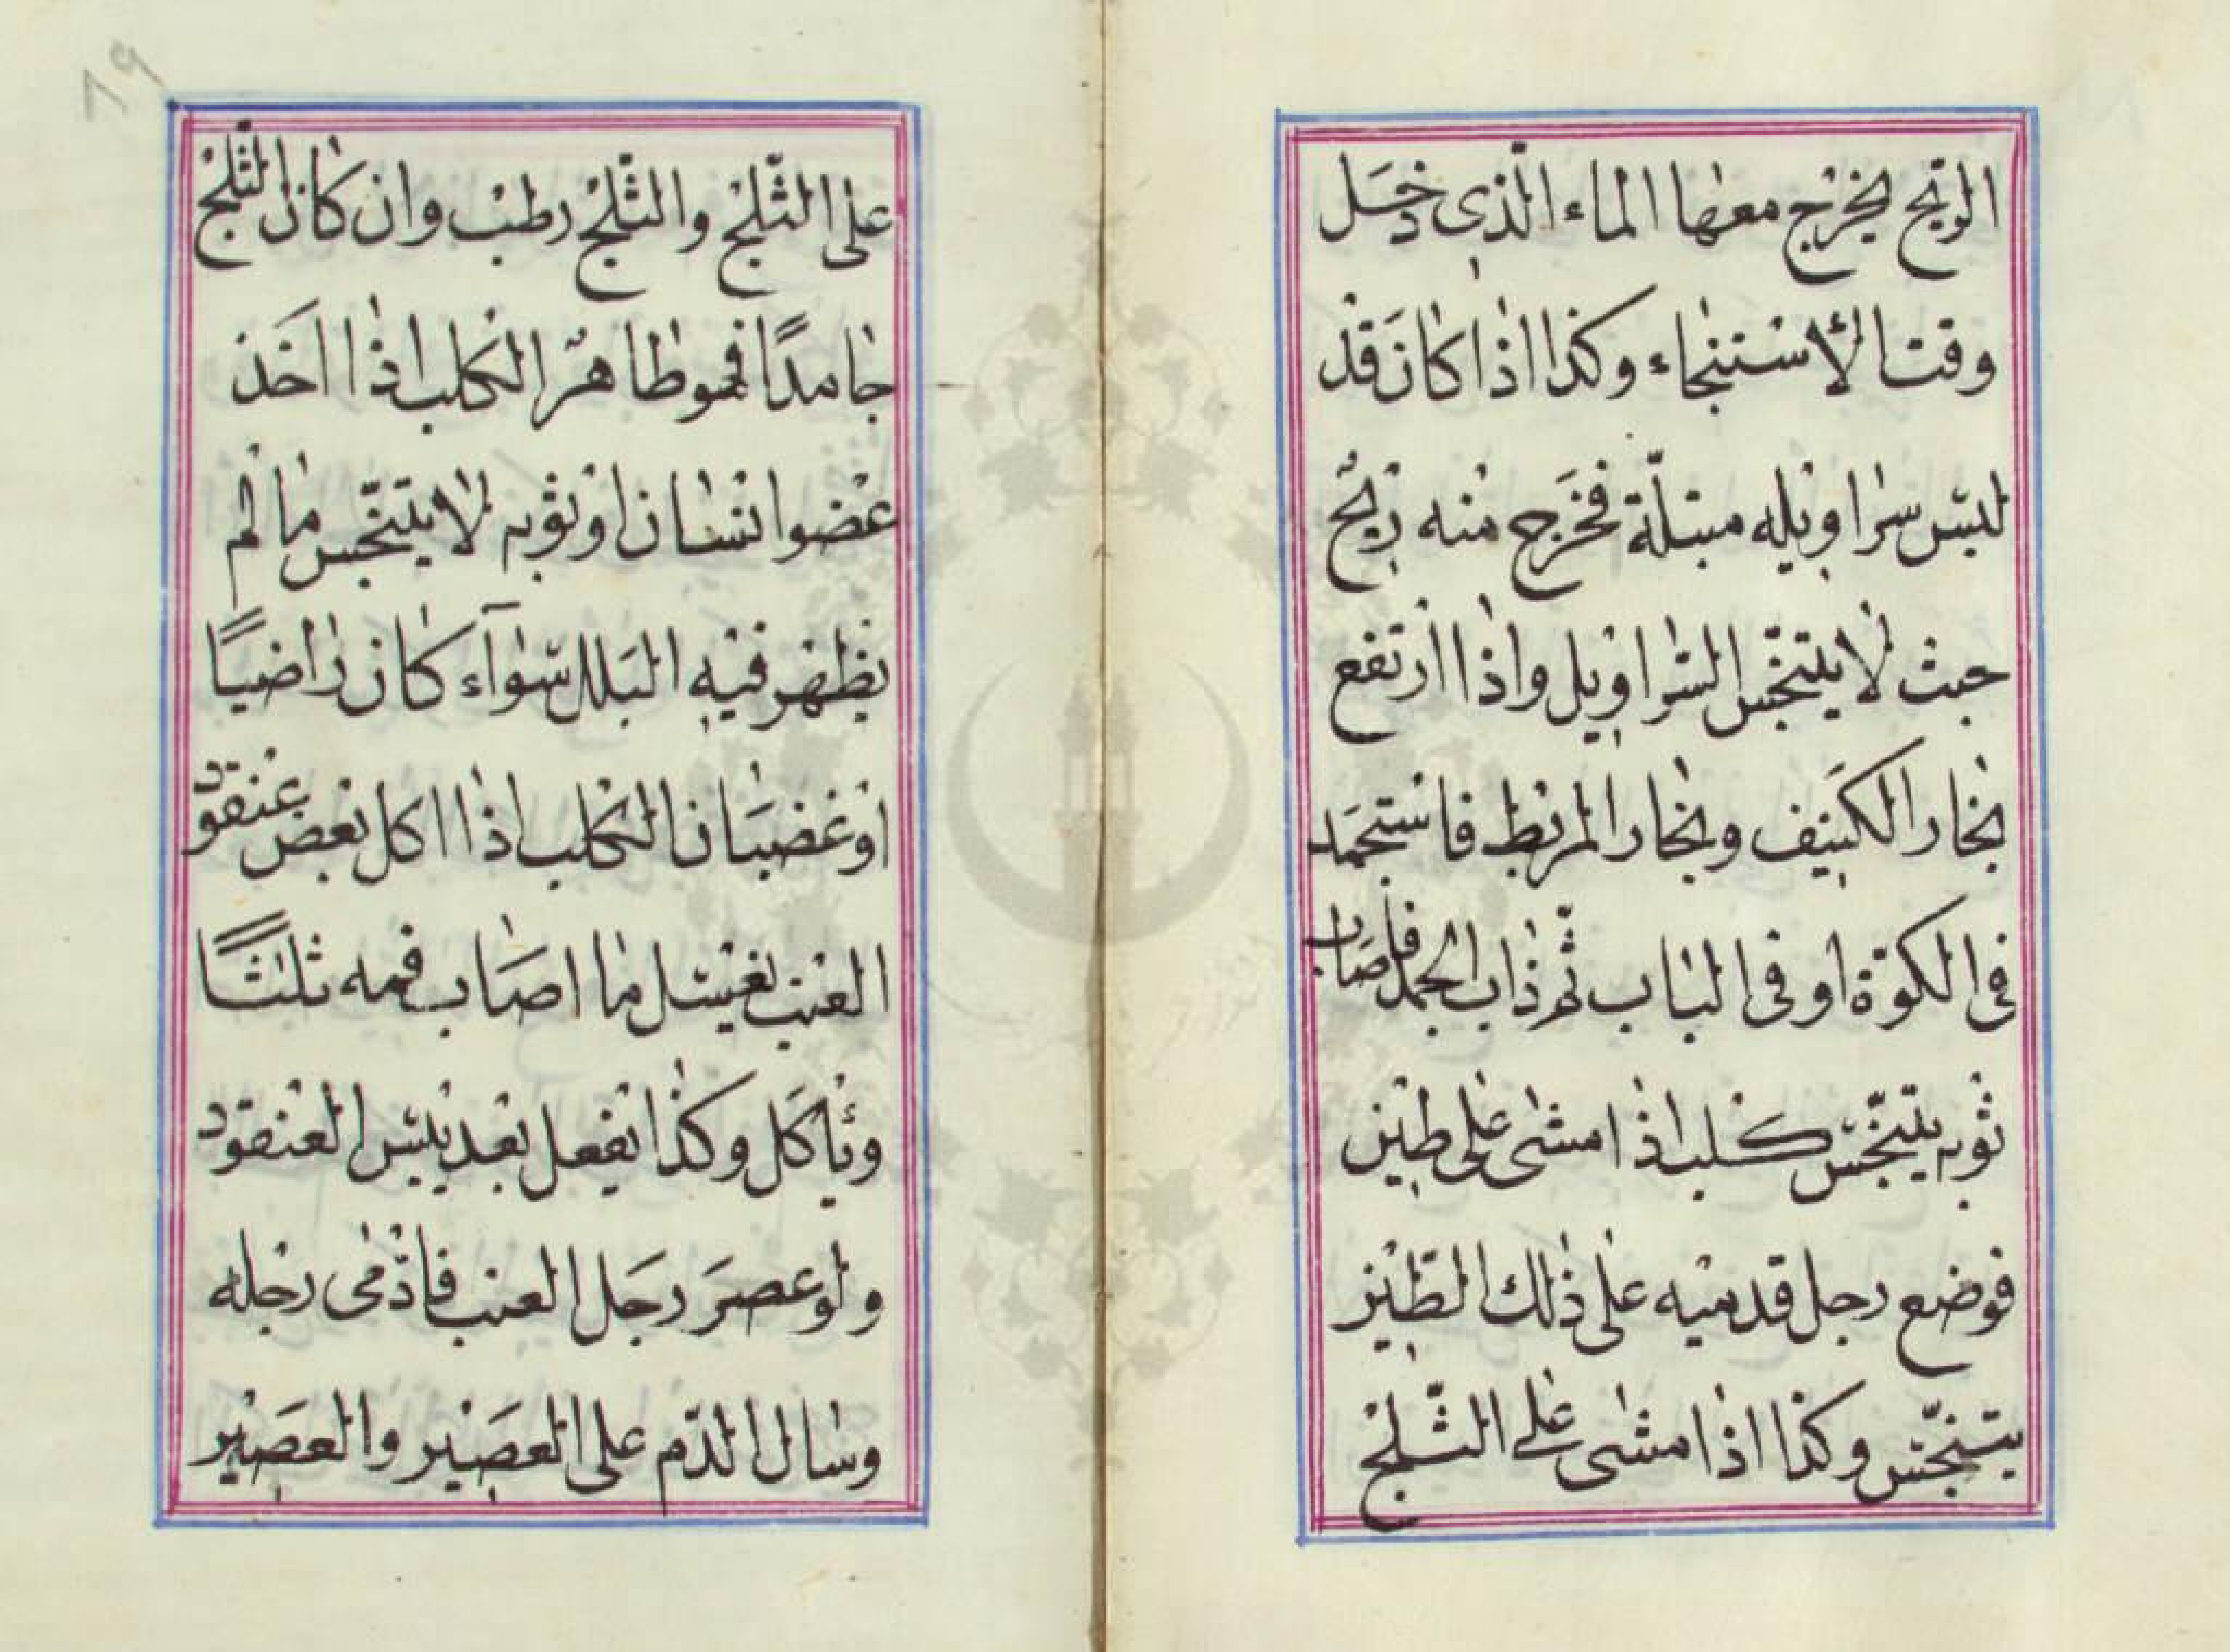 الريح يخرج معها الماء الذى دخل
وقت الأستنجاء وكذا اذا كان قد
لبس سراويله مبتلّة فخرج منه ريح
حيث لا يتنجّس السّراويل واذا ارتفع
بخار الكنيف وبخار المربط فاستجمد
فى الكوّة او فى الباب ثم ذاب الجمد فاصاب
ثوبه يتنجّس كلب اذا مشى على طين
فوضع رجل قدميه على ذلك الطّين
يتنجّس وكذا اذا مشى على الثّلج
٦٩
على الثّلج والثّلج رطب وان كان الثّلج
جامدًا فهو طاهر الكلب اذا اخذ
عضو انسان او ثوبه لا يتنجّس ما لم
يظهر فيه البلل سوآء كان راضيًا
او غضبان الكلب اذا اكل بعض عنقود
العنب يغسل ما اصاب فمه ثلثًا
ويأكل وكذا يفعل بعد يبس العنقود
ولو عصر رجل العنب فادّمى رجله
وسال الدّم على العصير والعصير